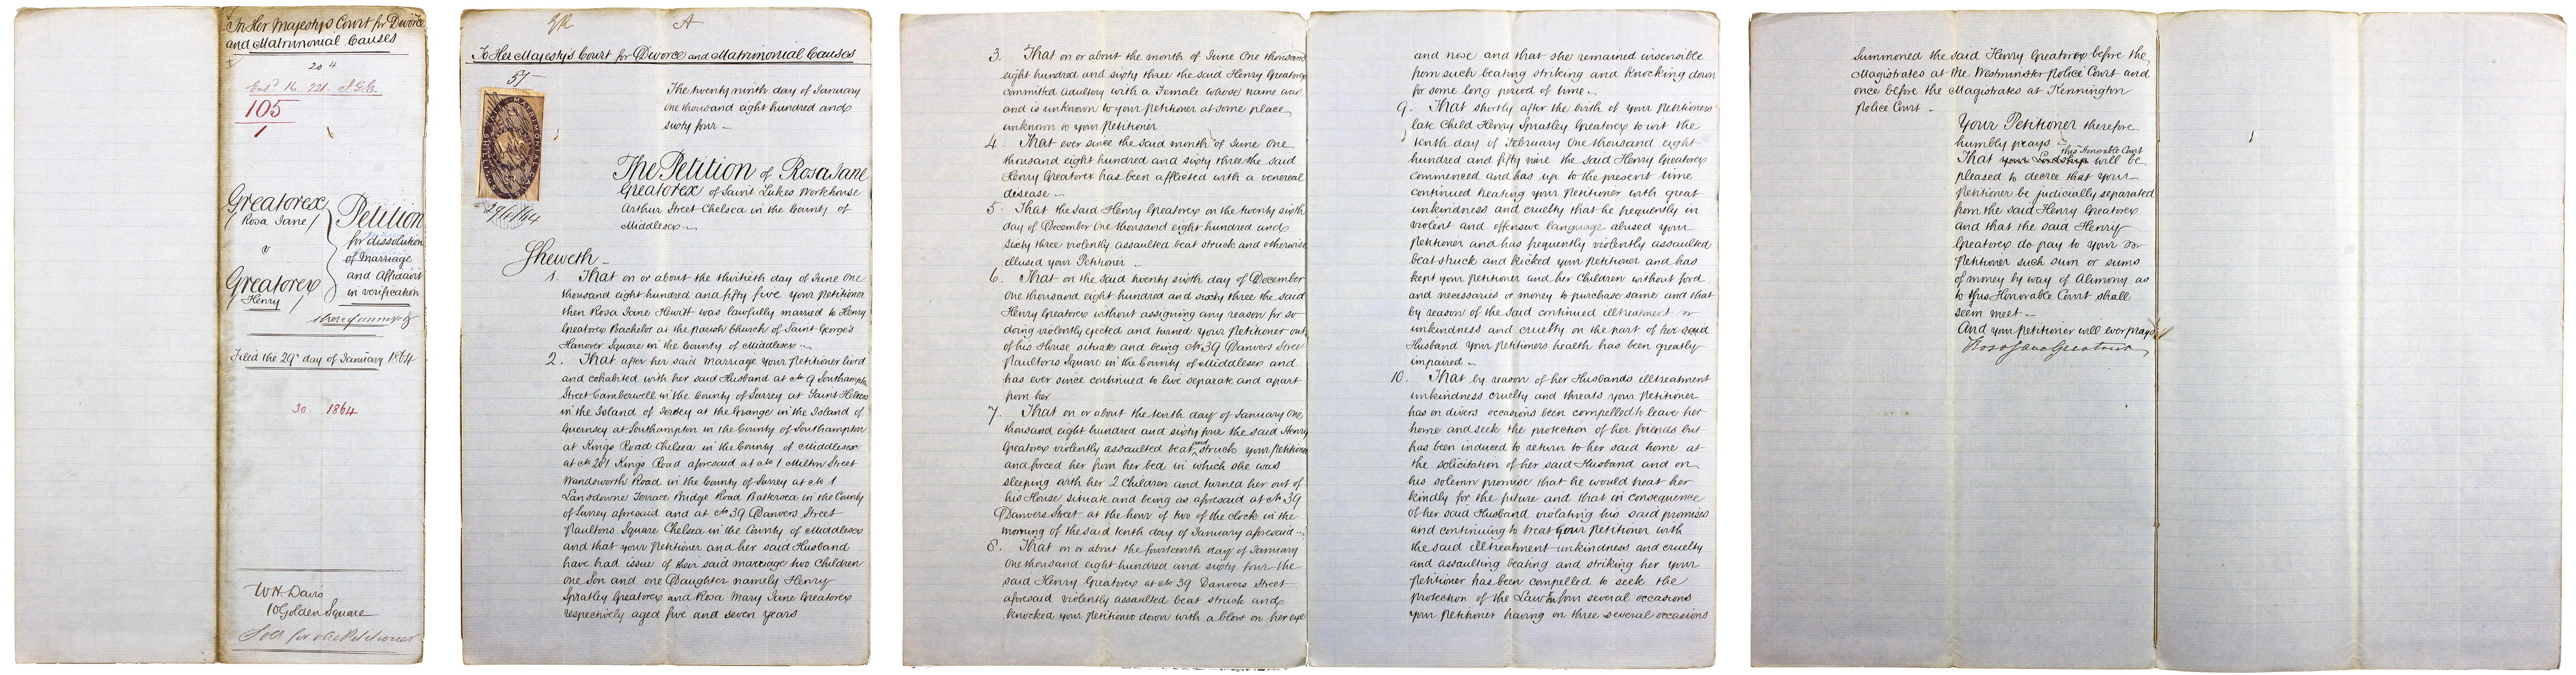 In Her Majestys Court for Divorce
and Matrimonial Causes
204
105
1
Greatorex
Rosa Jane
v
Greatorex
Henry
Petition
for dissolution
of Marriage
and Affidavit
in verification
thereof annexed
Filed the 29th day of January 1864
30 1864
W H Davis
10 Golden Square
Solr for the Petitioner
A
To Her Majesty's Court for Divorce and Matrimonial Causes
5/-
29/1/64
The twenty ninth day of January
One thousand eight hundred and
sixty four
The Petition of Rosa Jane
Greatorex of Saint Lukes Workhouse
Arthur Street Chelsea in the County of
Middlesex
Sheweth
1. That on or about the thirtieth day of June One
thousand eight hundred and fifty five your Petitioner
then Rosa Jane Hewitt was lawfully married to Henry
Greatorex Bachelor at the parish Church of Saint George's
Hanover Square in the County of Middlesex
2. That after her said Marriage your Petitioner lived
and cohabited with her said Husband at No 9 Southampton
Street Camberwell in the County of Surrey at Saint Heliers
in the Island of Jersey at the Grange in the Island of
Guernsey at Southampton in the County of Southampton
at Kings Road Chelsea in the County of Middlesex
at No 281 Kings Road aforesaid at No 1 Milton Street
Wandsworth Road in the County of Surrey at No 1
Lansdowne Terrace Bridge Road Battersea in the County
of Surrey aforesaid and at No 39 Danvers Street
Paultons Square Chelsea in the County of Middlesex
and that your Petitioner and her said Husband
have had issue of their said marriage two Children
One Son and one Daughter namely Henry
Spratley Greatorex and Rosa Mary Jane Greatorex
respectively aged five and seven years
3. That on or about the month of June One thousand
eight hundred and sixty three the said Henry Greatorex
committed adultery with a Female whose name was
and is unknown to your Petitioner at some place
unknown to your Petitioner
4. That ever since the said month of June One
thousand eight hundred and sixty three the said
Henry Greatorex has been afflicted with a venereal
disease
5. That the said Henry Greatorex on the twenty sixth
day of December One thousand eight hundred and
sixty three violently assaulted beat struck and otherwise
illused your Petitioner
6. That on the said twenty sixth day of December
One thousand eight hundred and sixty three the said
Henry Greatorex without assigning any reason for so
doing violently ejected and turned your Petitioner out
of his House situate and being No 39 Danvers Street
Paultons Square in the County of Middlesex and
has ever since continued to live separate and apart
from her
7. That on or about the tenth day of January One
thousand eight hundred and sixty four the said Henry
Greatorex violently assaulted beat and struck your Petitioner
and forced her from her bed in which she was
sleeping with her 2 Children and turned her out of
his House situate and being as aforesaid at No 39
Danvers Street at the hour of two of the clock in the
morning of the said tenth day of January aforesaid
8. That on or about the fourteenth day of January
One thousand eight hundred and sixty four the
said Henry Greatorex at No 39 Danvers Street
aforesaid violently assaulted beat struck and
knocked your Petitioner down with a blow on her eye
and nose and that she remained insensible
from such beating striking and knocking down
for some long period of time
9. That shortly after the birth of your Petitioners
late Child Henry Spratley Greatorex to wit the
tenth day of February One thousand eight
hundred and fifty nine the said Henry Greatorex
commenced and has up to the present time
continued treating your Petitioner with great
unkindness and cruelty that he frequently in
violent and offensive language abused your
Petitioner and has frequently violently assaulted
beat struck and kicked your Petitioner and has
kept your Petitioner and her Children without food
and necessaries or money to purchase same and that
by reason of the said continued illtreatment or
unkindness and cruelty on the part of her said
Husband your Petitioners health has been greatly
impaired
10. That by reason of her Husbands illtreatment
unkindness cruelty and threats your Petitioner
has on divers occasions been compelled to leave her
home and seek the protection of her friends but
has been induced to return to her said home at
the solicitation of her said Husband and on
his solemn promise that he would treat her
kindly for the future and that in consequence
of her said Husband violating his said promises
and continuing to treat your Petitioner with
the said illtreatment unkindness and cruelty
and assaulting beating and striking her your
Petitioner has been compelled to seek the
protection of the Law on several occasions
your Petitioner having on three several occasions
Summoned the said Henry Greatorex before the
Magistrates at the Westminster Police Court and
once before the Magistrates at Kennington
Police Court
Your Petitioner therefore
humbly prays
this Honorable Court
That your Lordship will be
pleased to decree that your
Petitioner be judicially separated
from the said Henry Greatorex
and that the said Henry
Greatorex do pay to your
Petitioner such sum or sums
of money by way of Alimony as
to this Honorable Court shall
seem meet
And your Petitioner will ever pray
Rosa Jane Greatorex